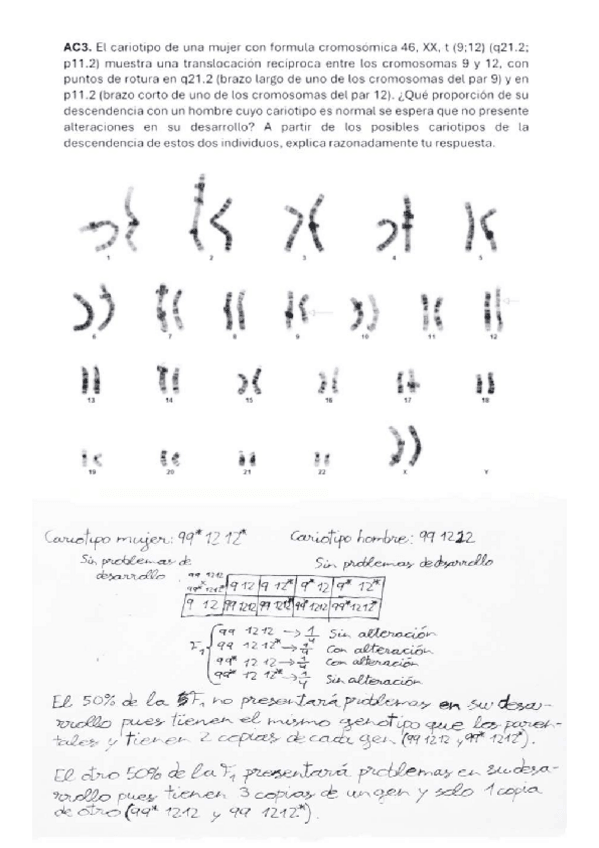 AC3. El cariotipo de una mujer con formula cromosómica 46, XX, t (9;12) (q21.2;
p11.2) muestra una translocación recíproca entre los cromosomas 9 y 12, con
puntos de rotura en q21.2 (brazo largo de uno de los cromosomas del par 9) y en
p11.2 (brazo corto de uno de los cromosomas del par 12). ¿Qué proporción de su
descendencia con un hombre cuyo cariotipo es normal se espera que no presente
alteraciones en su desarrollo? A partir de los posibles cariotipos de la
descendencia de estos dos individuos, explica razonadamente tu respuesta.
1 2 3 4 5
6 7 8 9 10 11 12
13 14 15 16 17 18
19 20 21 22 X Y
Cariotipo mujer: 99* 12 12* Cariotipo hombre: 99 1212
Sin problemas de desarrollo Sin problemas de desarrollo
99 1212
99* 1212* 9 12 9 12* 9* 12 9* 12*
9 12 99 1212 99 1212* 99* 1212 99* 1212*
F₁ { 99 12 12 → 1/4 Sin alteración
99 12 12* → 1/4 Con alteración
99* 12 12 → 1/4 Con alteración
99* 12 12* → 1/4 Sin alteración
El 50% de la F₁ no presentará problemas en su desa-
rrollo pues tienen el mismo genotipo que los paren-
tales y tienen 2 copias de cada gen (99 1212 y 99* 1212*).
El otro 50% de la F₁ presentará problemas en su desa-
rrollo pues tienen 3 copias de un gen y solo 1 copia
de otro (99* 1212 y 99 1212*).